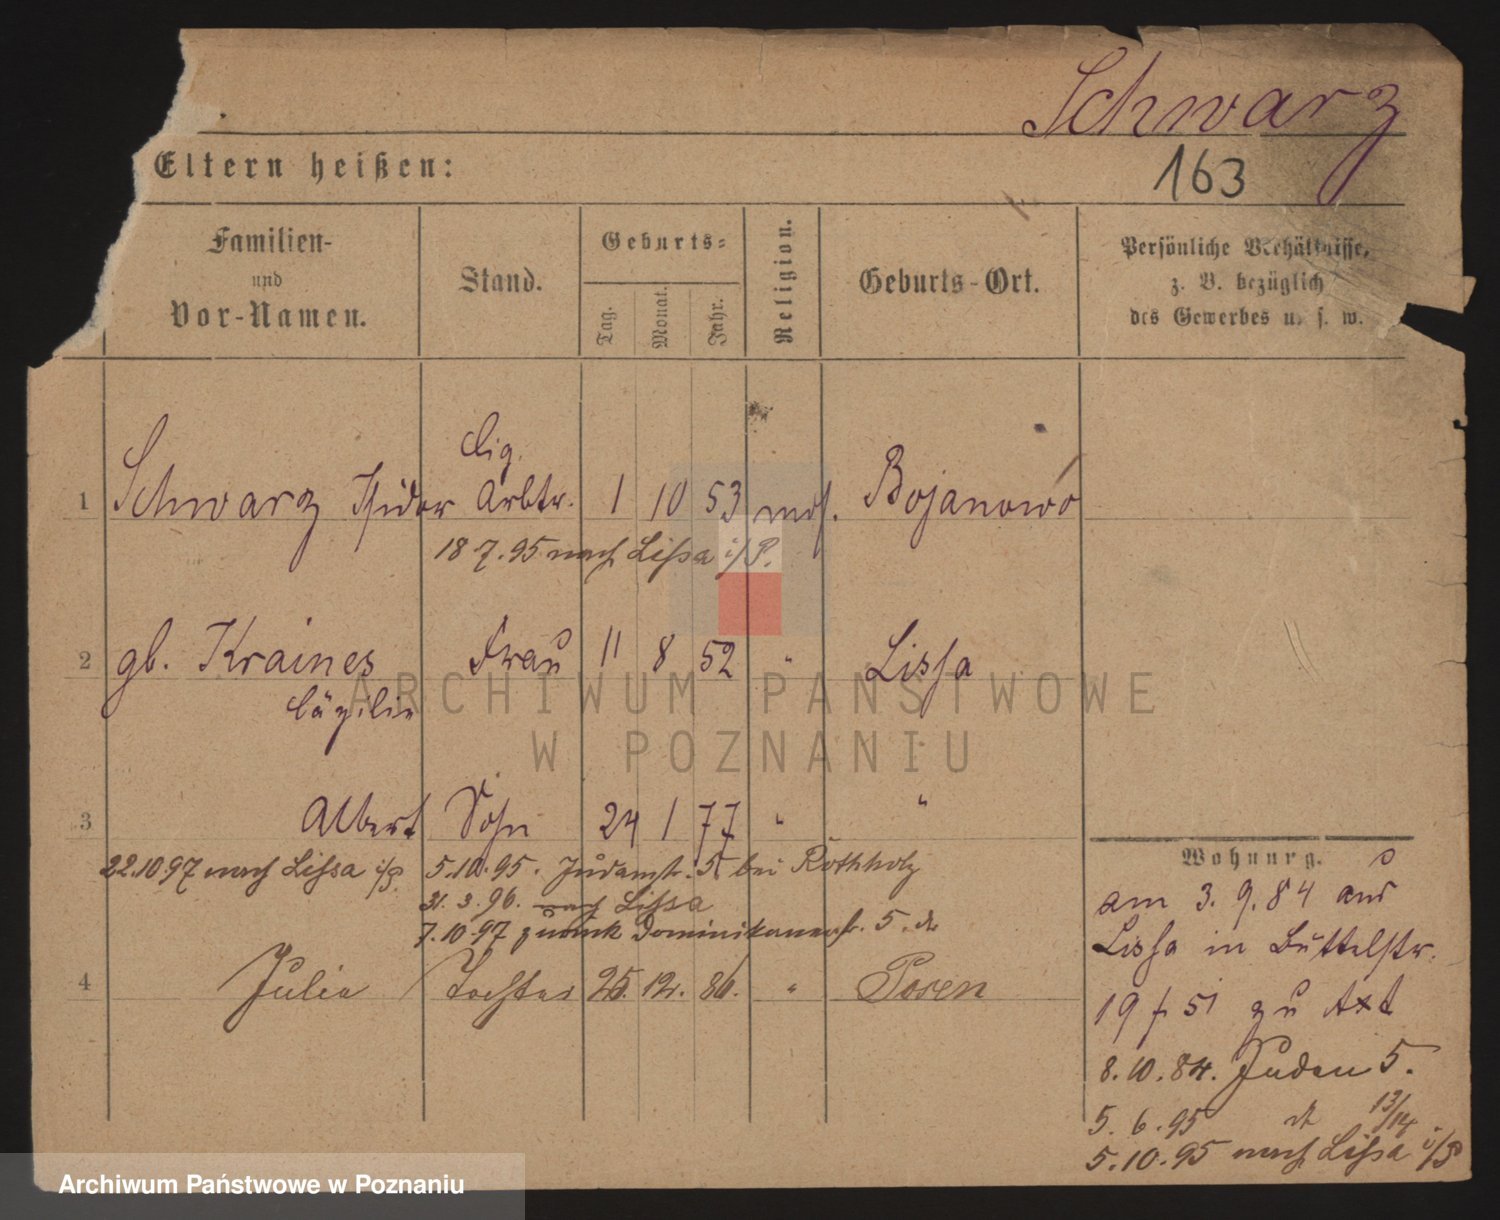 Schwarz
Eltern heißen:
163
Familien-
und
Vor-Namen.
Stand.
Geburts-
Tag.
Monat.
Jahr.
Religion.
Geburts-Ort.
Persönliche Verhältnisse,
z. B. bezüglich
des Gewerbes u. s. w.
Cig.
1 Schwarz Isidor Arbtr. 1 10 53 mos. Bojanowo
18 7. 95 nach Lissa i/P.
2 gb. Kraines Frau 11 8 52 " Lissa
Cäzilie
3 Albert Sohn 24 1 77 " "
22.10.97 nach Lissa i/P. 5.10.95. Judenstr. 5 bei Rothholz
31.3.96. nach Lissa
7.10.97 zurück Dominikanerstr. 5.
4 Julie Tochter 25. 12. 86. " Posen
Wohnung.
am 3. 9. 84 aus
Lissa in Büttelstr.
19 51 zu Axt
8.10.84. Juden 5.
5. 6. 95 dt 13/14
5.10.95 nach Lissa i/P
ARCHIWUM PAŃSTWOWE
W POZNANIU
Archiwum Państwowe w Poznaniu